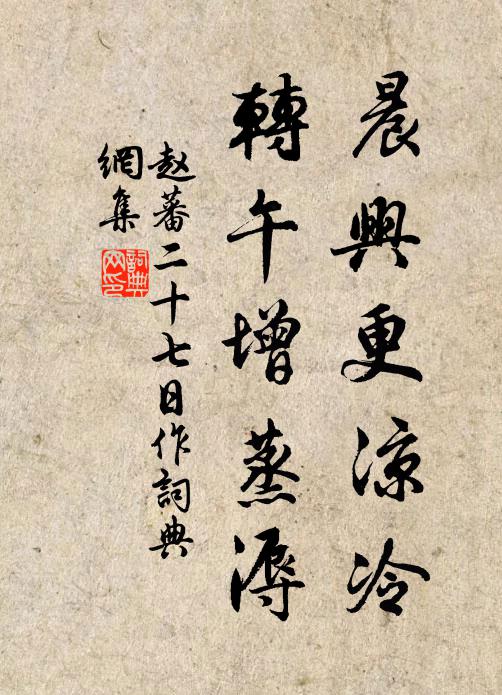 晨興更涼冷
轉午增蒸溽
赵蕃二十七日作詞典
網集
詞典
网印